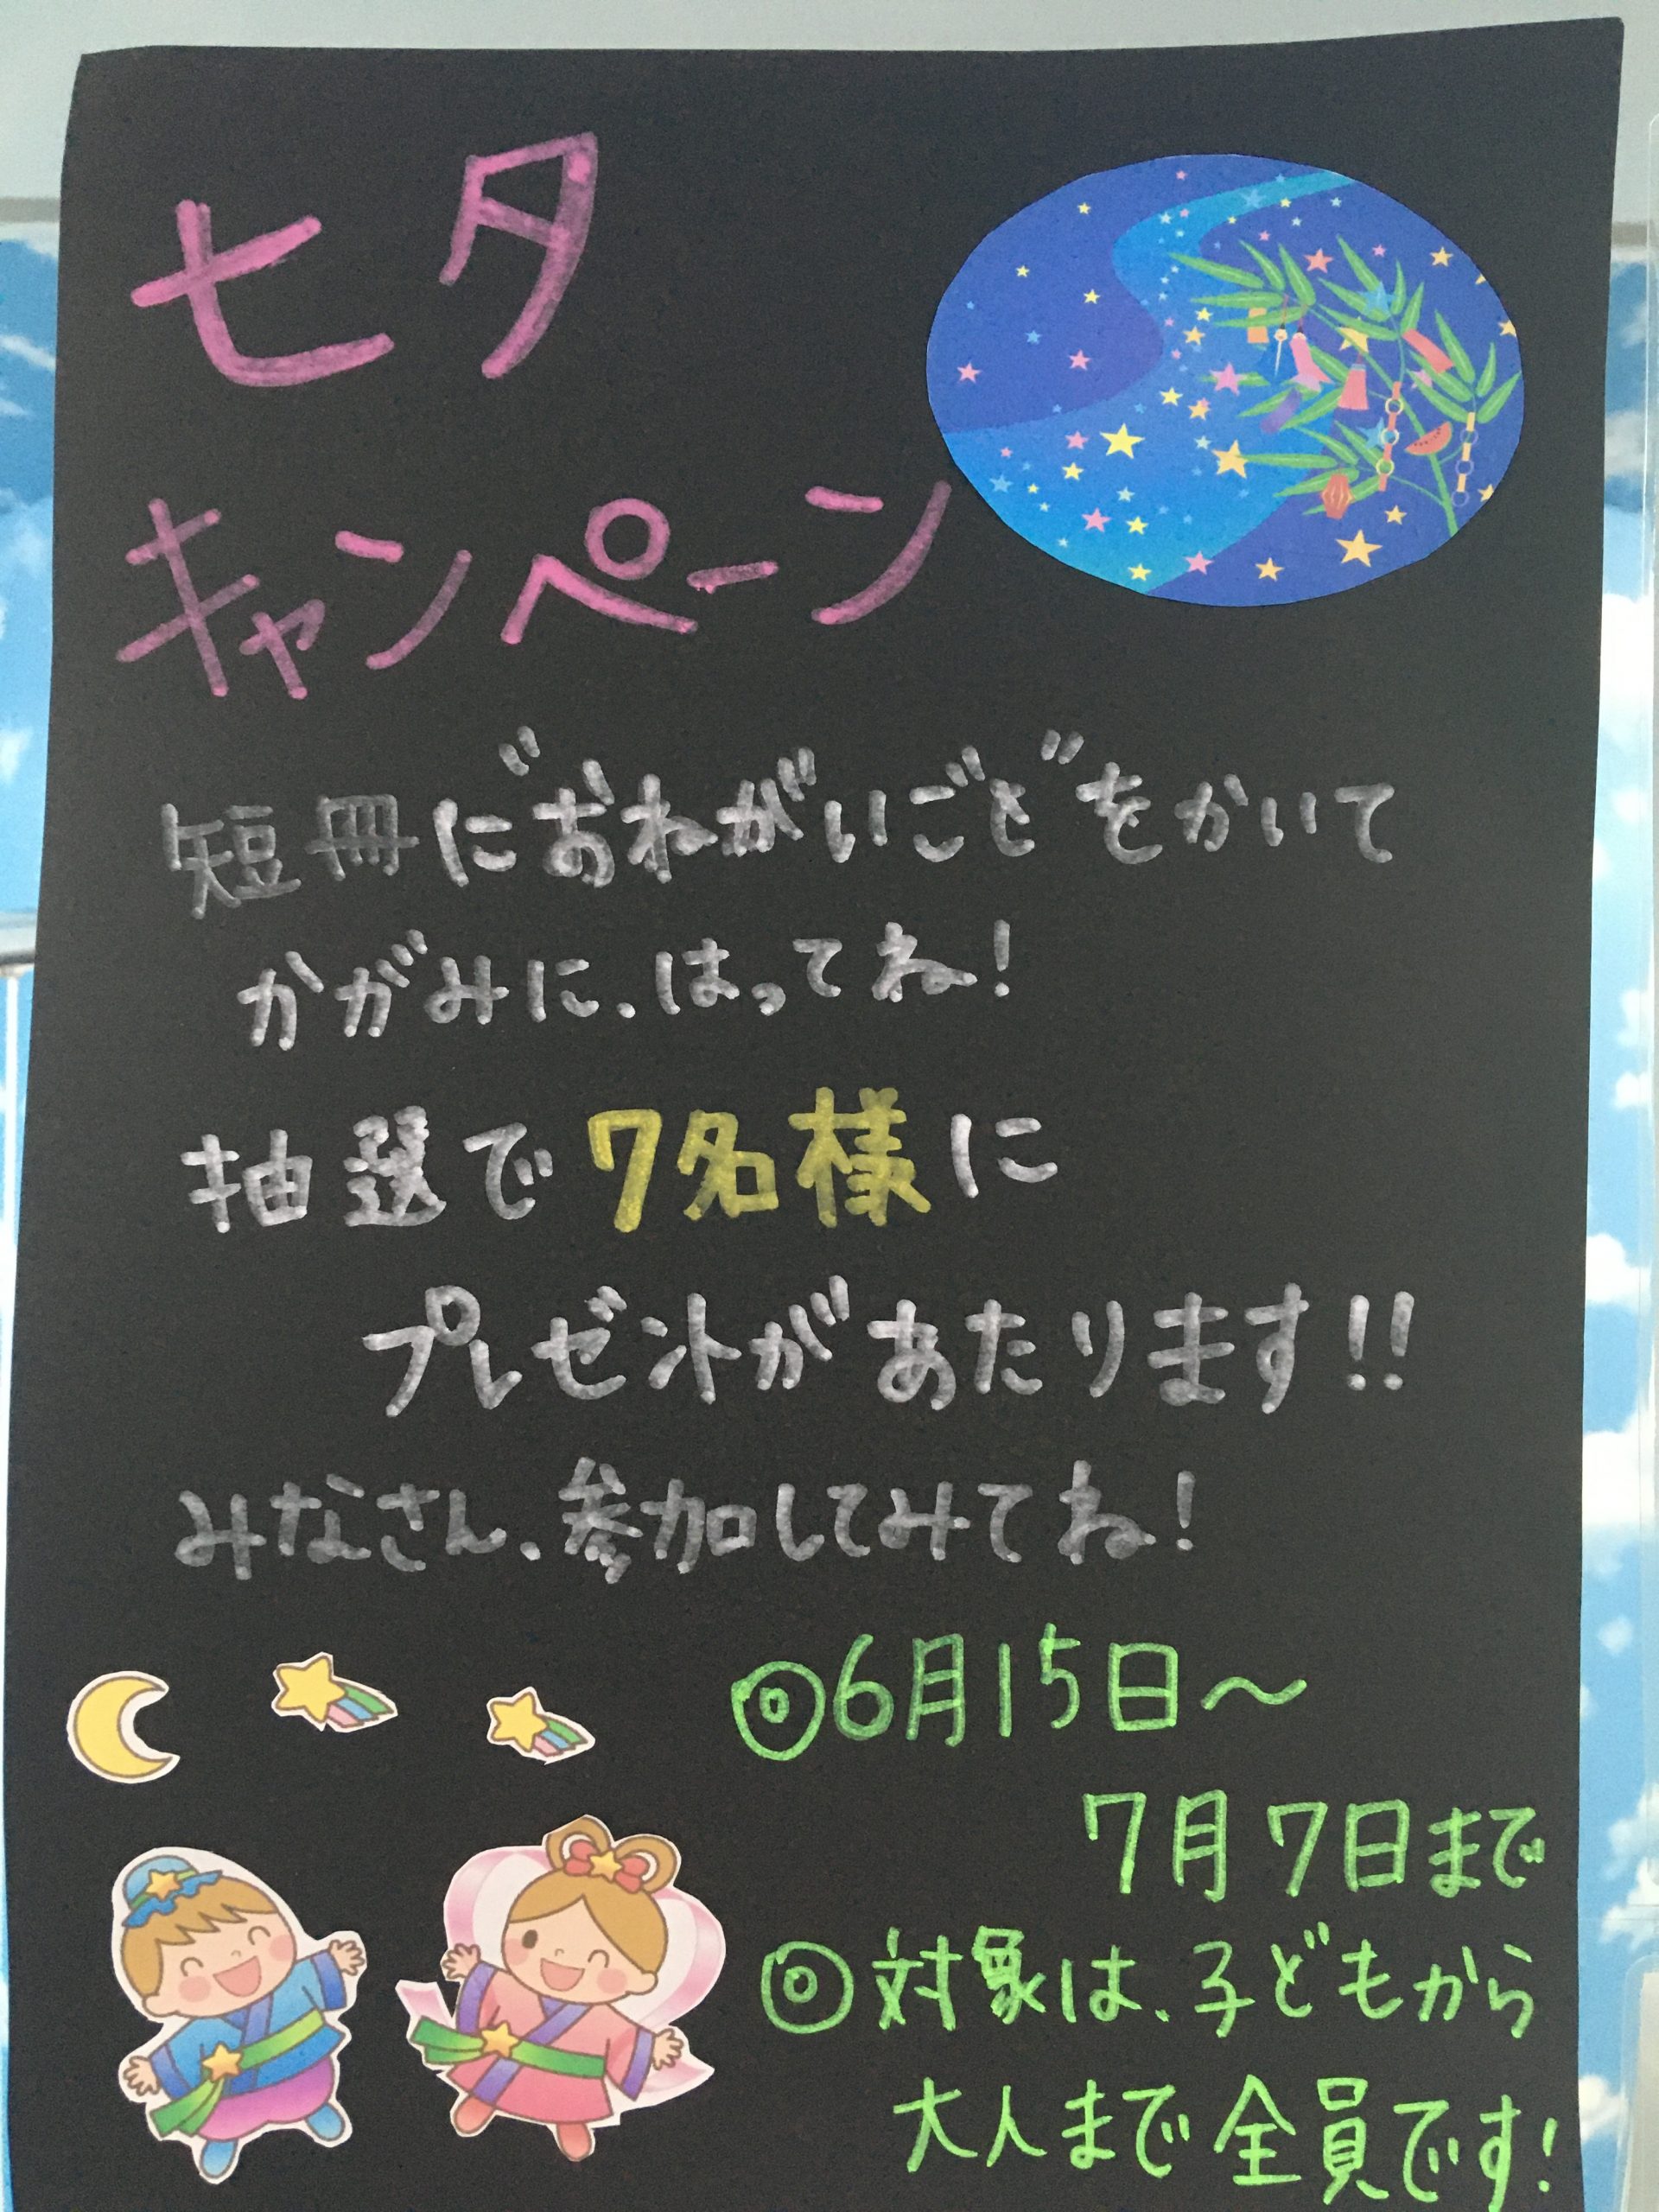 七夕
キャンペーン
短冊に"おねがいごと"をかいて
かがみに、はってね!
抽選で7名様に
プレゼントがあたります!!
みなさん、参加してみてね!
◎6月15日～
7月7日まで
◎対象は、子どもから
大人まで全員です!